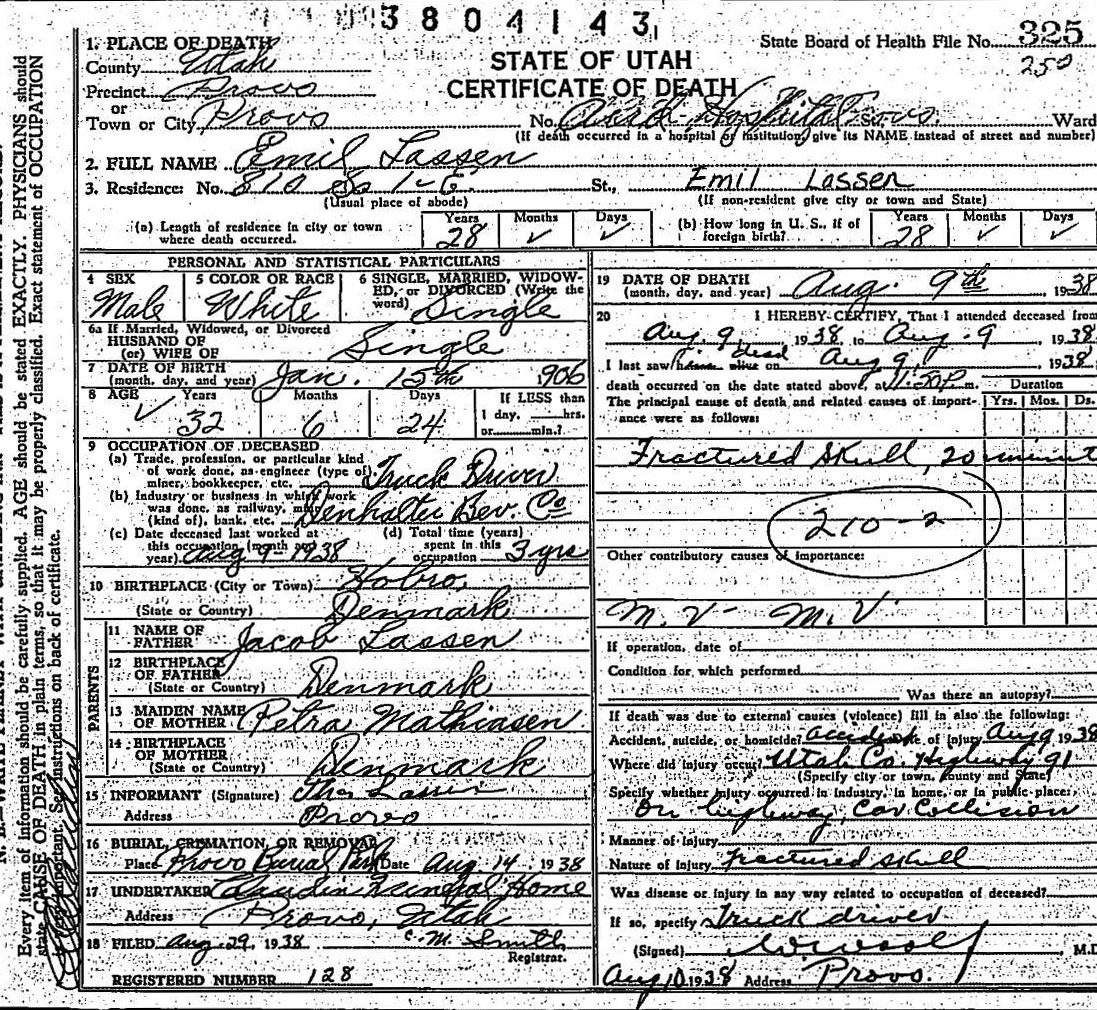 3804143
State Board of Health File No. 325
250
1. PLACE OF DEATH
County Utah
Precinct Provo
or
Town or City Provo
STATE OF UTAH
CERTIFICATE OF DEATH
No. Hospital Provo St. Ward
(If death occurred in a hospital or institution, give its NAME instead of street and number)
2. FULL NAME Emil Lassen
3. Residence: No. 810 So 1-E. St., Emil Lassen
(Usual place of abode) (If non-resident give city or town and State)
(a) Length of residence in city or town where death occurred. Years 28 Months ✓ Days ✓
(b) How long in U. S., if of foreign birth? Years 28 Months ✓ Days ✓
PERSONAL AND STATISTICAL PARTICULARS
4 SEX Male
5 COLOR OR RACE White
6 SINGLE, MARRIED, WIDOWED, or DIVORCED (Write the word) Single
6a If Married, Widowed, or Divorced
HUSBAND OF
(or) WIFE OF Single
7 DATE OF BIRTH
(month, day, and year) Jan. 15th 1906
8 AGE ✓ Years 32 Months 6 Days 24 If LESS than 1 day, hrs. or min.?
9 OCCUPATION OF DECEASED
(a) Trade, profession, or particular kind
of work done, as engineer (type of),
miner, bookkeeper, etc. Truck Driver
(b) Industry or business in which work
was done, as railway, mine
(kind of), bank, etc. Denhalter Bev. Co
(c) Date deceased last worked at
this occupation (month and
year) Aug 9-1938
(d) Total time (years)
spent in this
occupation 3 yrs
10 BIRTHPLACE (City or Town) Hobro,
(State or Country) Denmark
PARENTS
11 NAME OF
FATHER Jacob Lassen
12 BIRTHPLACE
OF FATHER
(State or Country) Denmark
13 MAIDEN NAME
OF MOTHER Petra Mathiasen
14 BIRTHPLACE
OF MOTHER
(State or Country) Denmark
15 INFORMANT (Signature) Lassen
Address Provo
16 BURIAL, CREMATION, OR REMOVAL
Place Provo Burial Park Date Aug. 14 1938
17 UNDERTAKER Claudin Funeral Home
Address Provo, Utah
18 FILED Aug. 29, 1938 C. M. Smith
Registrar.
REGISTERED NUMBER 128
19 DATE OF DEATH
(month, day, and year) Aug. 9th 1938
20 I HEREBY CERTIFY, That I attended deceased from
Aug. 9 1938, to Aug. 9 1938.
I last saw him dead alive on Aug 9, 1938.
death occurred on the date stated above, at 11:50 P. m.
The principal cause of death and related causes of importance were as follows: Duration Yrs. Mos. Ds.
Fractured Skull, 20 minut
210-2
Other contributory causes of importance:
M. V - M. V
If operation, date of
Condition for which performed
Was there an autopsy?
If death was due to external causes (violence) fill in also the following:
Accident, suicide, or homicide? accident Date of injury Aug 9 1938
Where did injury occur? Utah Co. Highway 91
(Specify city or town, county and State)
Specify whether injury occurred in industry, in home, or in public place:
On highway, Car Collision
Manner of Injury
Nature of Injury Fractured skull
Was disease or injury in any way related to occupation of deceased?
If so, specify Truck driver
(Signed) M.D
Aug 10 1938 Address Provo.
Every item of information should be carefully supplied. AGE should be stated EXACTLY. PHYSICIANS should
state CAUSE OF DEATH in plain terms, so that it may be properly classified. Exact statement of OCCUPATION
important. See instructions on back of certificate.